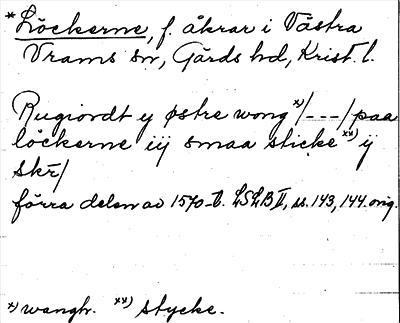 *Löckerne, f. åkrar i Västra
Vrams sn, Gärds hd, Krist. l.
Rugiordt y østre wong x)/---/paa
löckerne iij smaa sticke xx) ij
skr/
förra delen av 1570-t. LSLB II, ss. 143, 144. orig.
x) wangh. xx) stycke.